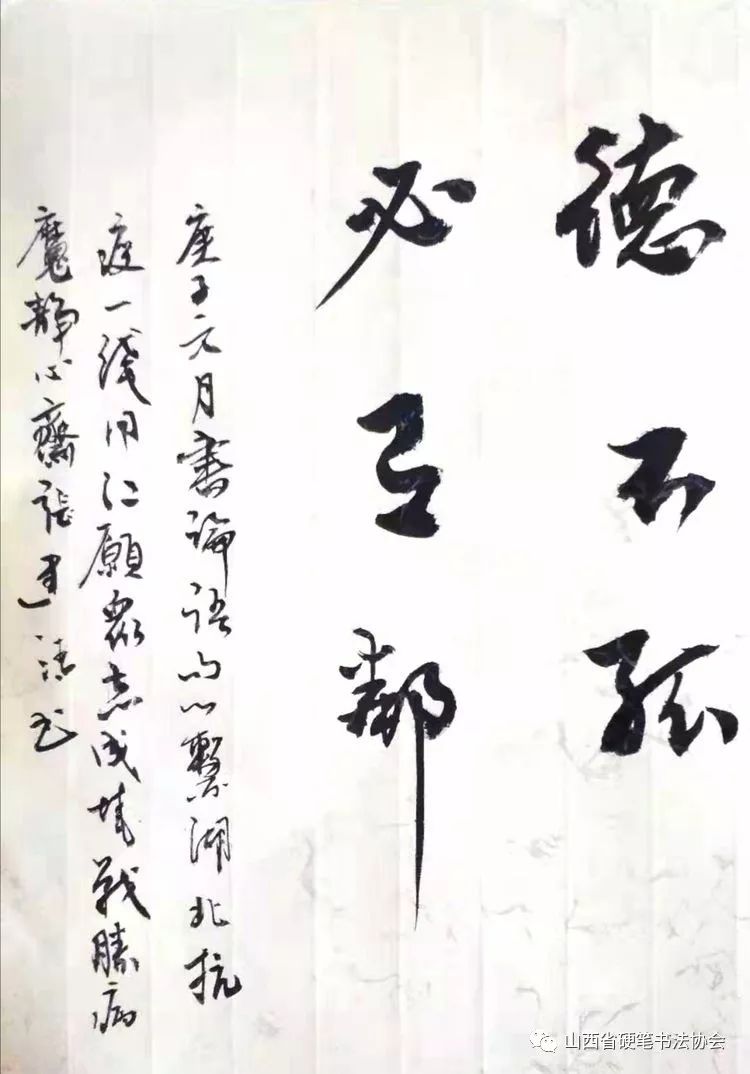 德不孤
必有鄰
庚子元月書論語句心繫湖北抗
疫一綫同仁願眾志成城戰勝病
魔靜心齋張建清书
山西省硬笔书法协会